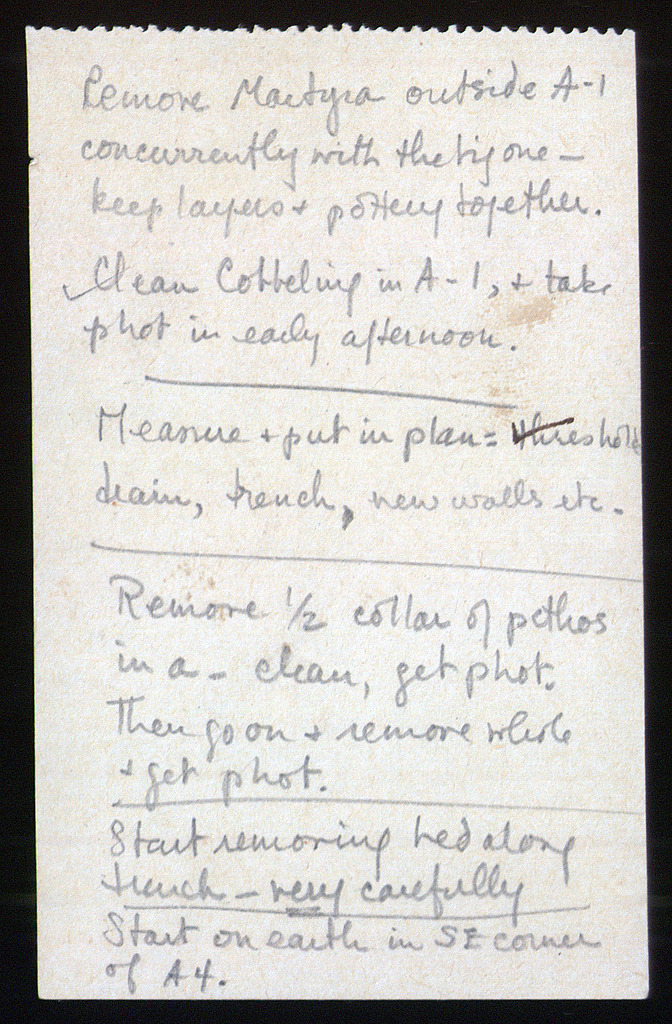 Remove Martyra outside A-1
concurrently with the big one –
keep layers + pottery together.
Clean Cobbeling in A-1, + take
phot in early afternoon.
Measure + put in plan = threshold
drain, trench, new walls etc.
Remove 1/2 collar of pithos
in a – clean, get phot.
Then go on + remove whole
+ get phot.
Start removing bed along
trench – very carefully
Start on earth in SE corner
of A4.